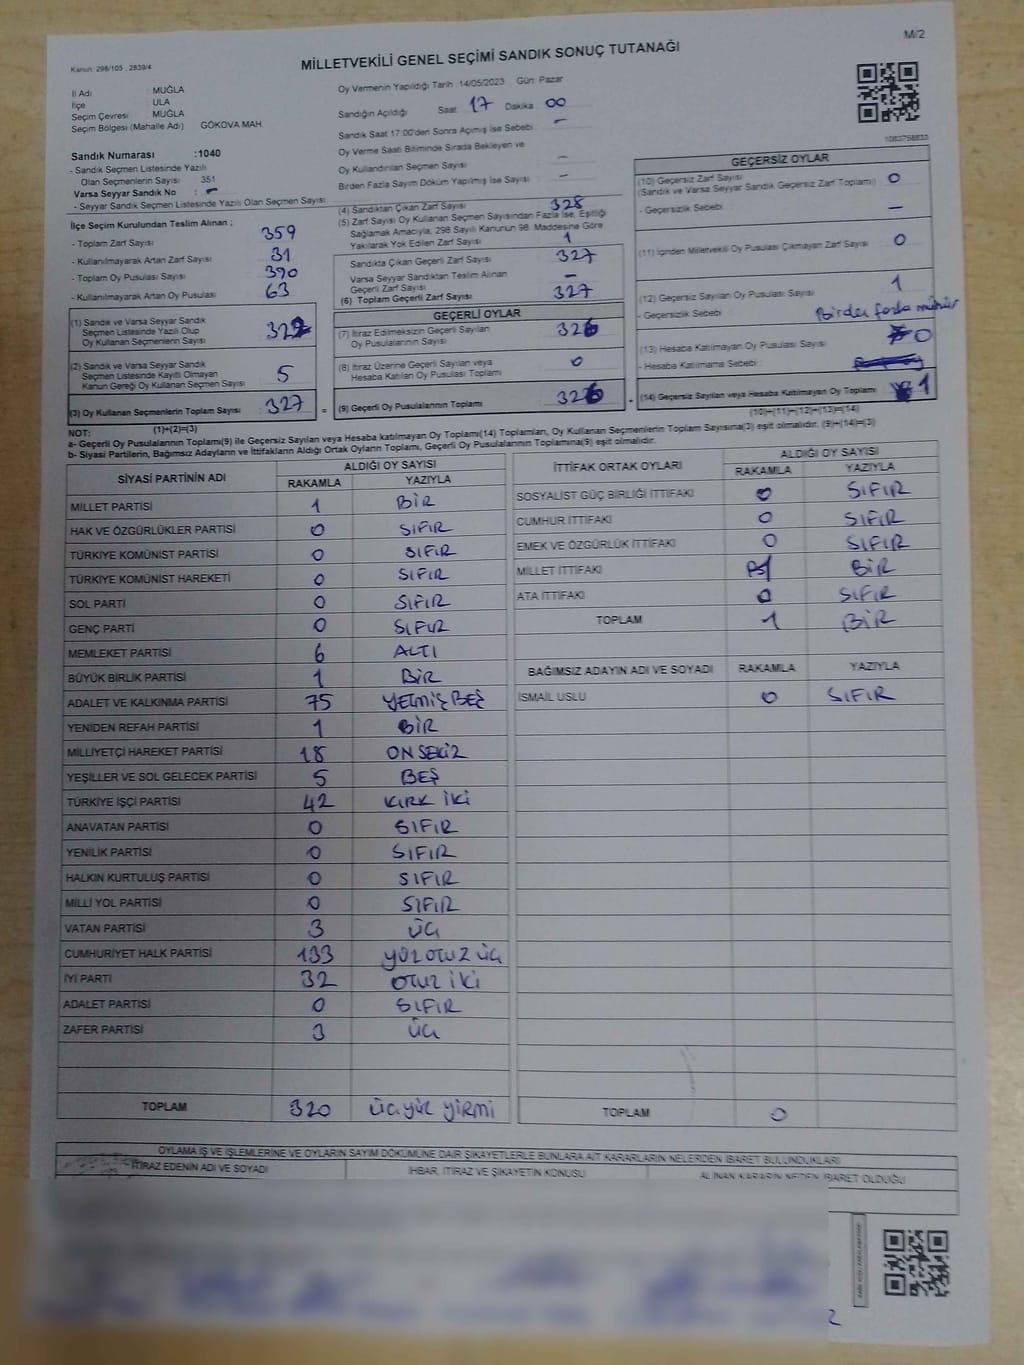 M/2
Kanun: 298/105 , 2839/4
MİLLETVEKİLİ GENEL SEÇİMİ SANDIK SONUÇ TUTANAĞI
İl Adı MUĞLA
İlçe ULA
Seçim Çevresi MUĞLA
Seçim Bölgesi (Mahalle Adı) GÖKOVA MAH.
Oy Vermenin Yapıldığı Tarih :14/05/2023 Gün: Pazar
Sandığın Açıldığı Saat: 17 Dakika: 00
Sandık Saat 17:00'den Sonra Açılmış İse Sebebi: -
Oy Verme Saati Bitiminde Sırada Bekleyen ve
Oy Kullandırılan Seçmen Sayısı -
Birden Fazla Sayım Döküm Yapılmış İse Sayısı -
1083758833
Sandık Numarası :1040
- Sandık Seçmen Listesinde Yazılı
Olan Seçmenlerin Sayısı 351
Varsa Seyyar Sandık No : -
- Seyyar Sandık Seçmen Listesinde Yazılı Olan Seçmen Sayısı:
İlçe Seçim Kurulundan Teslim Alınan ;
- Toplam Zarf Sayısı 359
- Kullanılmayarak Artan Zarf Sayısı 31
- Toplam Oy Pusulası Sayısı 390
- Kullanılmayarak Artan Oy Pusulası 63
(1) Sandık ve Varsa Seyyar Sandık
Seçmen Listesinde Yazılı Olup
Oy Kullanan Seçmenlerin Sayısı : 322
(2) Sandık ve Varsa Seyyar Sandık
Seçmen Listesinde Kayıtlı Olmayan
Kanun Gereği Oy Kullanan Seçmen Sayısı : 5
(3) Oy Kullanan Seçmenlerin Toplam Sayısı : 327 =
(1)+(2)=(3)
(4) Sandıktan Çıkan Zarf Sayısı 328
(5) Zarf Sayısı Oy Kullanan Seçmen Sayısından Fazla İse, Eşitliği
Sağlamak Amacıyla, 298 Sayılı Kanunun 98. Maddesine Göre
Yakılarak Yok Edilen Zarf Sayısı 1
Sandıkta Çıkan Geçerli Zarf Sayısı 327
Varsa Seyyar Sandıktan Teslim Alınan
Geçerli Zarf Sayısı -
(6) Toplam Geçerli Zarf Sayısı 327
GEÇERLİ OYLAR
(7) İtiraz Edilmeksizin Geçerli Sayılan
Oy Pusulalarının Sayısı : 326
(8) İtiraz Üzerine Geçerli Sayılan veya
Hesaba Katılan Oy Pusulası Toplamı 0
(9) Geçerli Oy Pusulalarının Toplamı 326 +
GEÇERSİZ OYLAR
(10) Geçersiz Zarf Sayısı
(Sandık ve Varsa Seyyar Sandık Geçersiz Zarf Toplamı) : 0
- Geçersizlik Sebebi : -
(11) İçinden Milletvekili Oy Pusulası Çıkmayan Zarf Sayısı 0
(12) Geçersiz Sayılan Oy Pusulası Sayısı 1
- Geçersizlik Sebebi Birden fazla mühür
(13) Hesaba Katılmayan Oy Pusulası Sayısı 0
- Hesaba Katılmama Sebebi :
(14) Geçersiz Sayılan veya Hesaba Katılmayan Oy Toplamı 1
(10)+(11)+(12)+(13)=(14)
NOT:
a- Geçerli Oy Pusulalarının Toplamı(9) ile Geçersiz Sayılan veya Hesaba katılmayan Oy Toplamı(14) Toplamları, Oy Kullanan Seçmenlerin Toplam Sayısına(3) eşit olmalıdır. (9)+(14)=(3)
b- Siyasi Partilerin, Bağımsız Adayların ve İttifakların Aldığı Ortak Oyların Toplamı, Geçerli Oy Pusulalarının Toplamına(9) eşit olmalıdır.
SİYASİ PARTİNİN ADI ALDIĞI OY SAYISI
RAKAMLA YAZIYLA
MİLLET PARTİSİ 1 BİR
HAK VE ÖZGÜRLÜKLER PARTİSİ 0 SIFIR
TÜRKİYE KOMÜNİST PARTİSİ 0 SIFIR
TÜRKİYE KOMÜNİST HAREKETİ 0 SIFIR
SOL PARTİ 0 SIFIR
GENÇ PARTİ 0 SIFIR
MEMLEKET PARTİSİ 6 ALTI
BÜYÜK BİRLİK PARTİSİ 1 BİR
ADALET VE KALKINMA PARTİSİ 75 YETMİŞ BEŞ
YENİDEN REFAH PARTİSİ 1 BİR
MİLLİYETÇİ HAREKET PARTİSİ 18 ON SEKİZ
YEŞİLLER VE SOL GELECEK PARTİSİ 5 BEŞ
TÜRKİYE İŞÇİ PARTİSİ 42 KIRK İKİ
ANAVATAN PARTİSİ 0 SIFIR
YENİLİK PARTİSİ 0 SIFIR
HALKIN KURTULUŞ PARTİSİ 0 SIFIR
MİLLİ YOL PARTİSİ 0 SIFIR
VATAN PARTİSİ 3 ÜÇ
CUMHURİYET HALK PARTİSİ 133 YÜZ OTUZ ÜÇ
İYİ PARTİ 32 OTUZ İKİ
ADALET PARTİSİ 0 SIFIR
ZAFER PARTİSİ 3 ÜÇ
TOPLAM 320 ÜÇ YÜZ YİRMİ
İTTİFAK ORTAK OYLARI ALDIĞI OY SAYISI
RAKAMLA YAZIYLA
SOSYALİST GÜÇ BİRLİĞİ İTTİFAKI 0 SIFIR
CUMHUR İTTİFAKI 0 SIFIR
EMEK VE ÖZGÜRLÜK İTTİFAKI 0 SIFIR
MİLLET İTTİFAKI 1 BİR
ATA İTTİFAKI 0 SIFIR
TOPLAM 1 BİR
BAĞIMSIZ ADAYIN ADI VE SOYADI RAKAMLA YAZIYLA
İSMAİL USLU 0 SIFIR
TOPLAM 0
OYLAMA İŞ VE İŞLEMLERİNE VE OYLARIN SAYIM DÖKÜMÜNE DAİR ŞİKAYETLERLE BUNLARA AİT KARARLARIN NELERDEN İBARET BULUNDUKLARI
İTİRAZ EDENİN ADI VE SOYADI İHBAR, İTİRAZ VE ŞİKAYETİN KONUSU ALINAN KARARIN NEDEN İBARET OLDUĞU